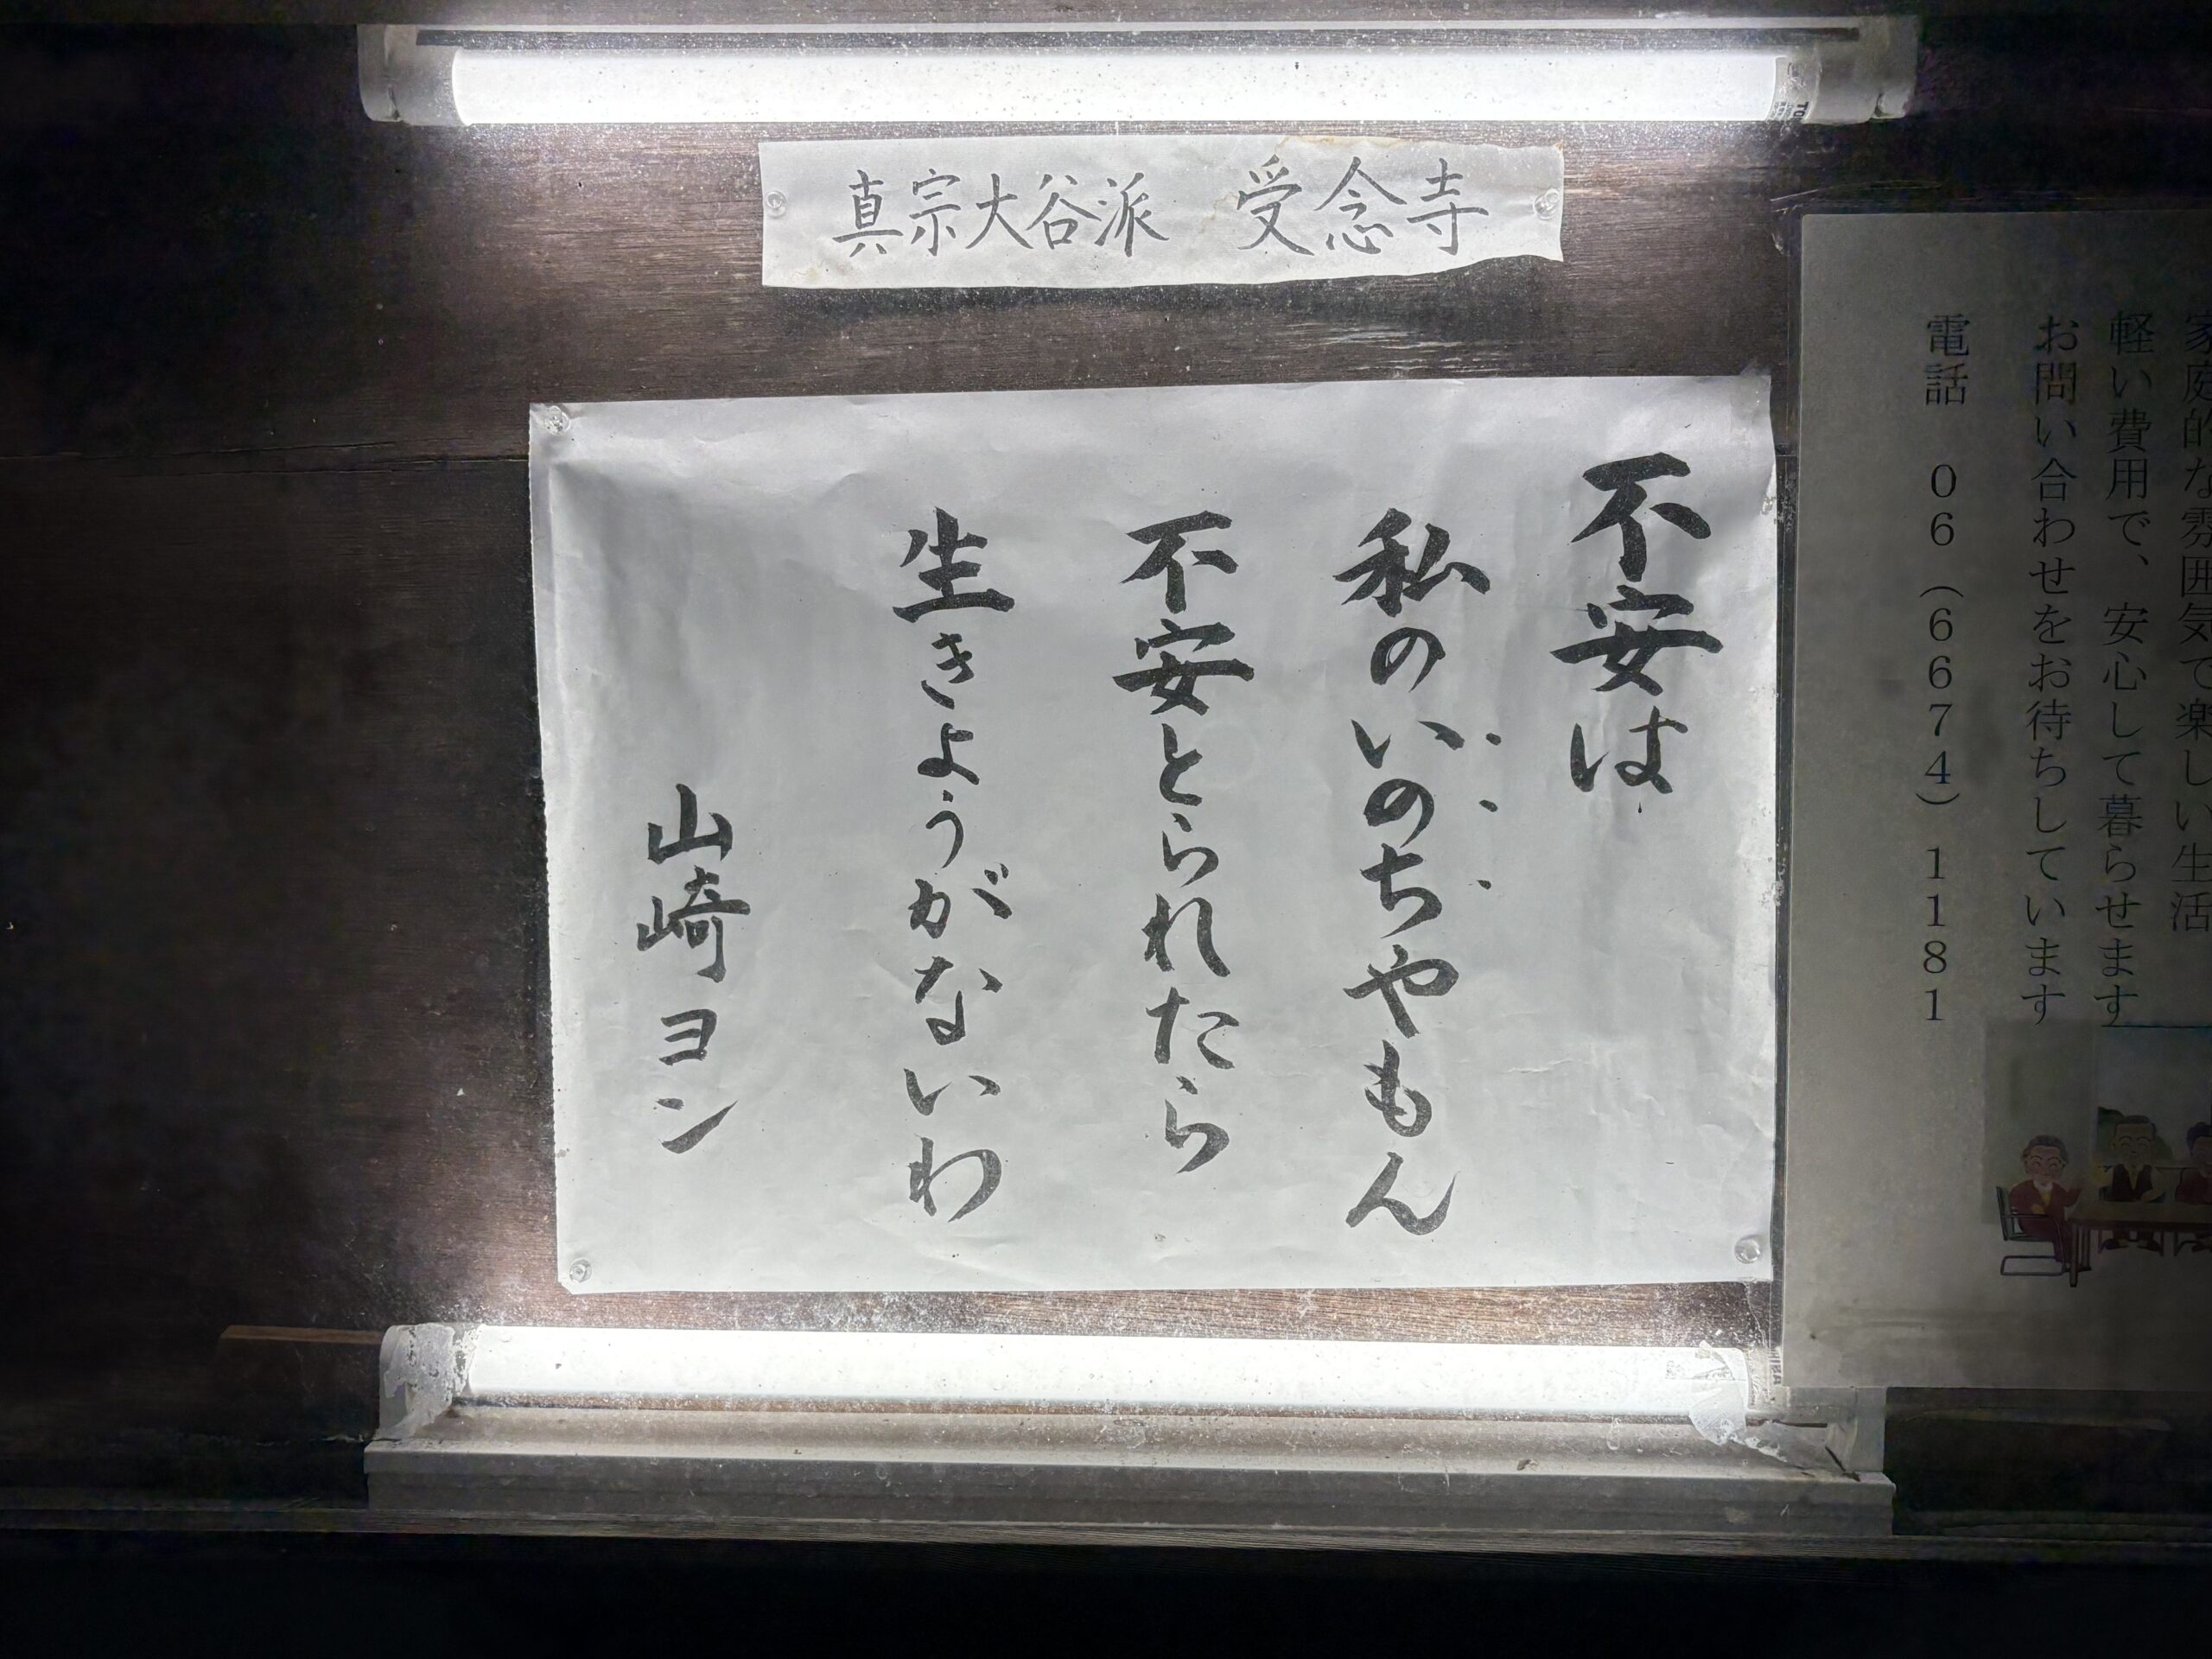 真宗大谷派　受念寺
不安は
私のいのちやもん
不安とられたら
生きようがないわ
山崎ヨン
家庭的な雰囲気で楽しい生活
軽い費用で、安心して暮らせます
お問い合わせをお待ちしています
電話　06（6674）1181